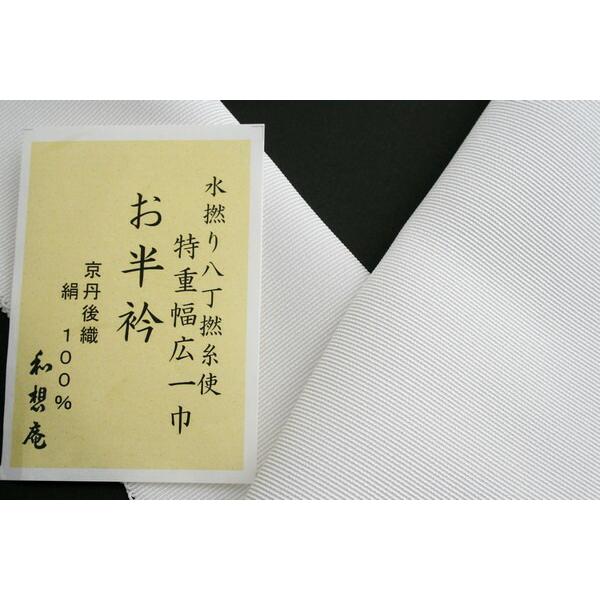 水撚り八丁撚糸使
特重幅広一巾
お半衿
京丹後織
絹 100%
和想庵